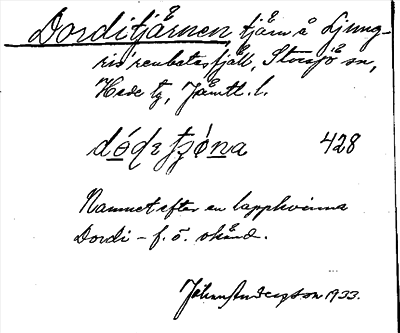 Dorditjärnen tjärn å Ljung-
ris renbetesfjäll, Storsjö sn,
Hede tg, Jämtl. l.
428
Namnet efter en lappkvinna
Dordi – f. ö. okänd.
Johan Andersson 1933.